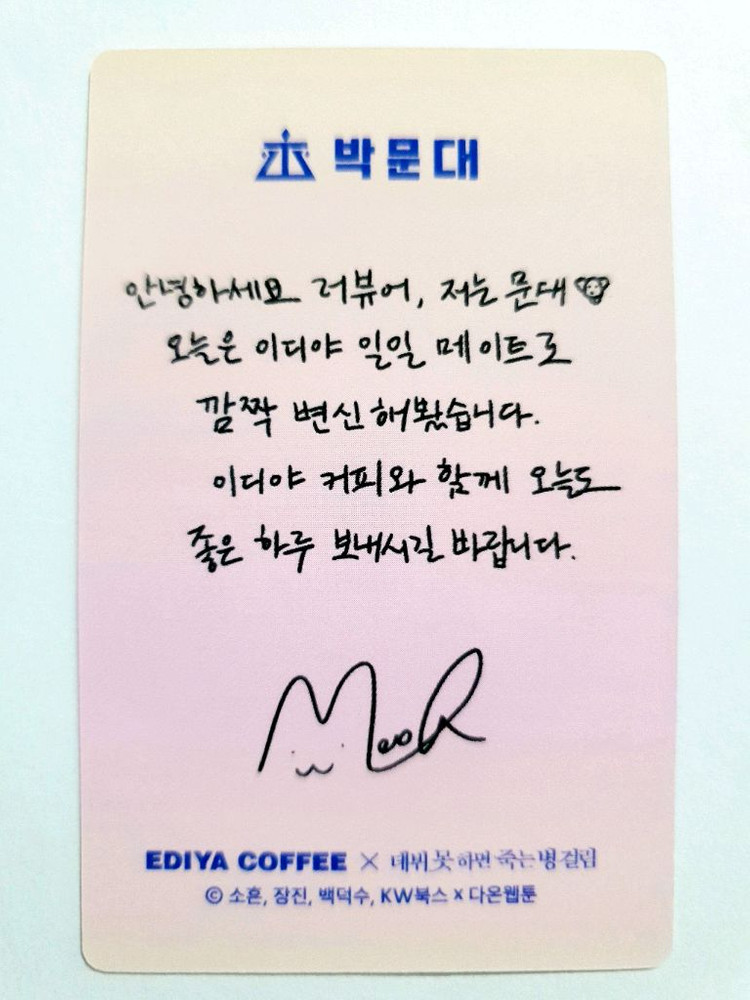 박문대
안녕하세요 러뷰어, 저는 문대
오늘은 이디야 일일 메이트로
깜짝 변신해봤습니다.
이디야 커피와 함께 오늘도
좋은 하루 보내시길 바랍니다.
EDIYA COFFEE × 데뷔 못 하면 죽는 병 걸림
© 소흔, 장진, 백덕수, KW북스 x 다온웹툰